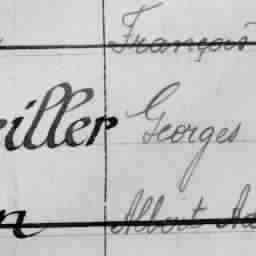 François
iller Georges
n Albert